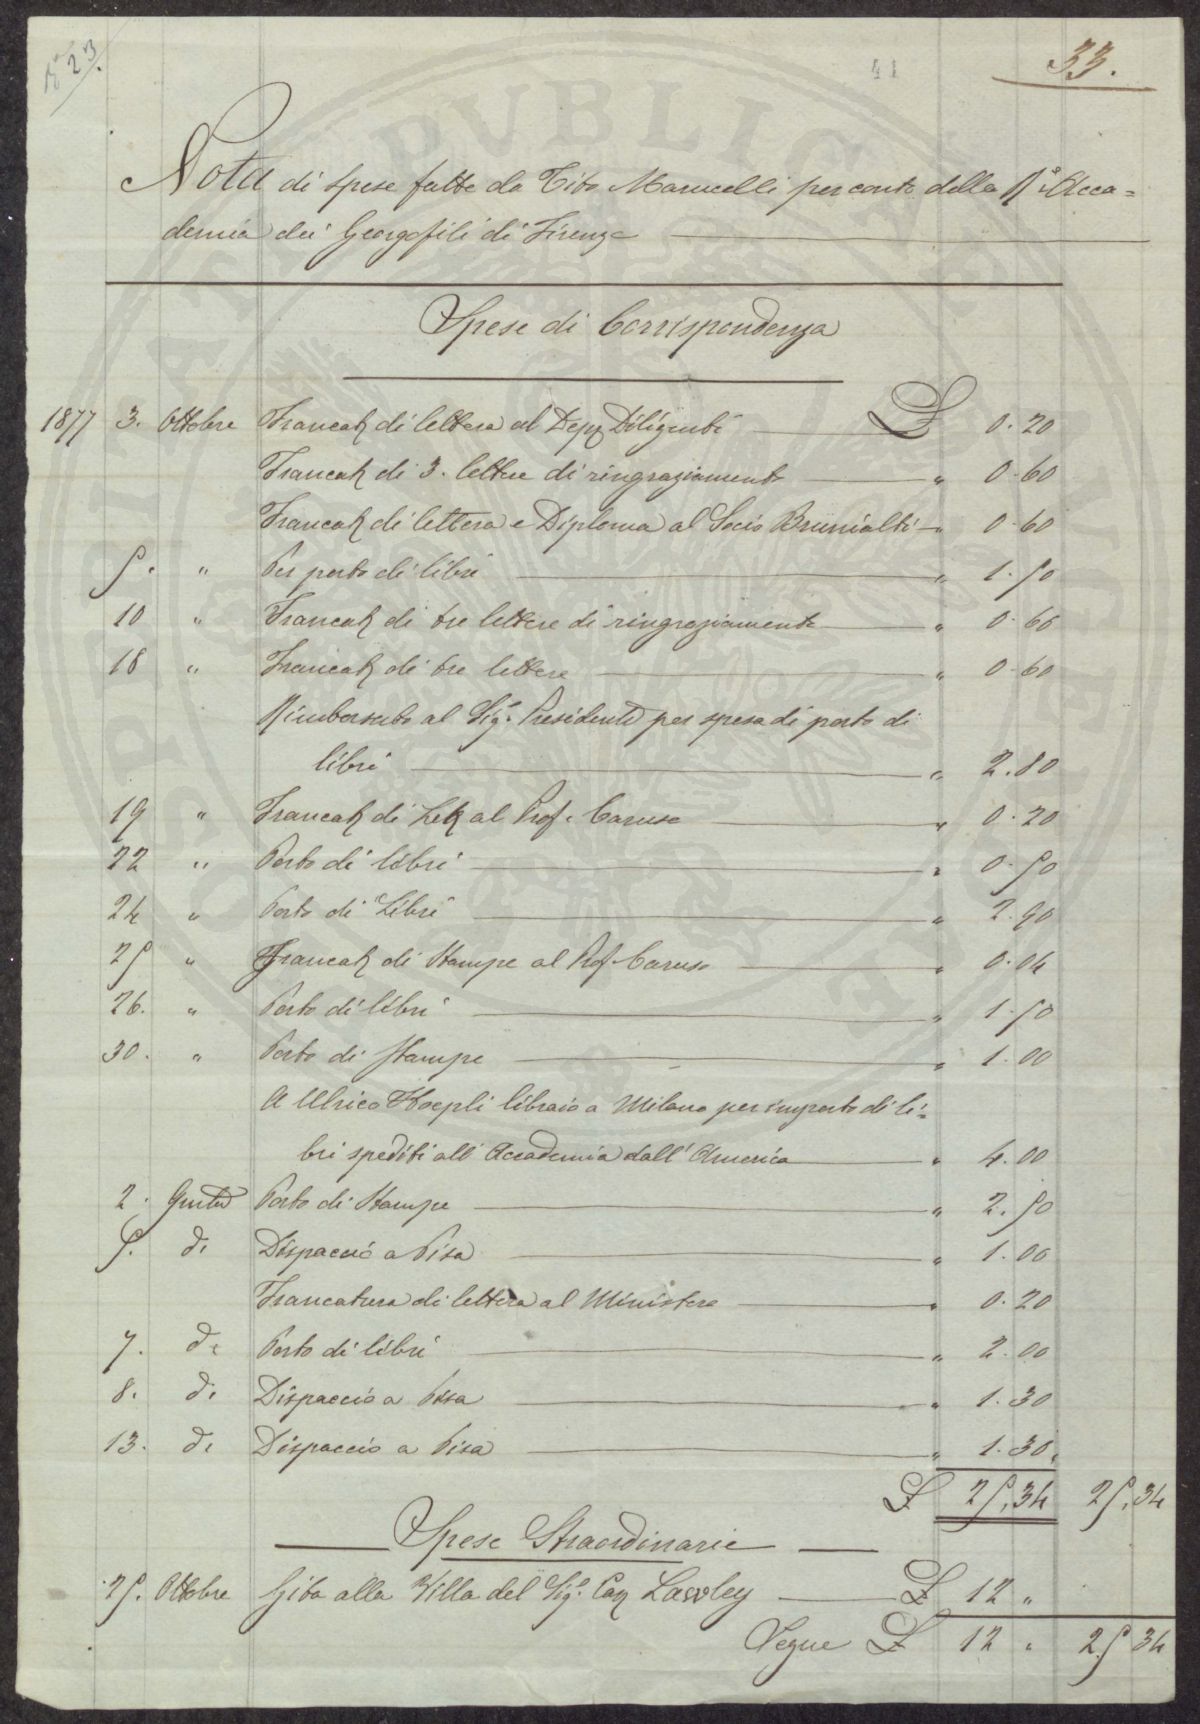 1823.
41
33.
Nota di spese fatte da Tito Marucelli per conto della R.ª Acca=
demia dei Georgofili di Firenze
Spese di Corrispondenza
1877 3. Ottobre Francatª di lettera al Depº Diligenti £ 0.20
Francatª di 3. lettere di ringraziamento " 0.60
Francatª di lettera e Diploma al Socio Brunialti " 0.60
5. " Per porto di libri " 1.50
10 " Francatª di tre lettere di ringraziamento " 0.60
18 " Francatª di tre lettere " 0.60
Rimborsato al Sig.r Presidente per spesa di porto di
libri " 2.80
19 " Francatª di Letª al Prof. Caruso " 0.20
22 " Porto di libri " 0.50
24 " Porto di Libri " 2.90
25 " Francatª di Stampe al Prof. Caruso " 0.04
26. " Porto di libri " 1.50
30. " Porto di Stampe " 1.00
A Ulrico Hoepli libraio a Milano per importo di li=
bri spediti all'Accademia dall'America " 4.00
2. Porto di Stampe " 2.50
5. d. Dispaccio a Pisa " 1.00
Francatura di lettera al Ministero " 0.20
7. d. Porto di libri " 2.00
8. d. Dispaccio a Pisa " 1.30
13. d. Dispaccio a Pisa " 1.30.
£ 25,34 25,34
Spese Straordinarie
25. Ottobre Gita alla Villa del Sig.r Cav Lawley £ 12 "
Segue £ 12 " 25 34